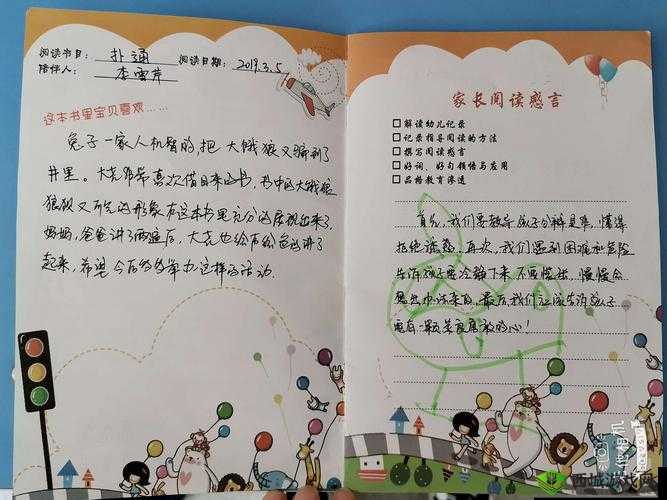 阅读书目: 扑通
阅读日期: 2019.3.5
陪伴人: 李雪芹
这本书里宝贝喜欢……
兔子一家人机智的,把大饿狼又骗到了
井里。大尧非常喜欢借回来这书,书中大饿狼
狼狈又可笑的形象在这本书里充分的展现出来了
妈妈,爸爸讲了两遍后,大尧也给后给爸妈讲了
起来,希望今后多多举办这样的活动
家长阅读感言
□解读幼儿记录
□记录指导阅读的方法
□撰写阅读感言
□好词、好句领悟与应用
□品格教育渗透
首先,我们要教导孩子分辨是非,懂得
拒绝诱惑。再次,我们遇到困难和危险
告诉孩子要冷静下来,不要慌张,慢慢会
想出办法来的,最后,我们应该告诉孩子
要有一颗勇敢的心!
西城游戏网